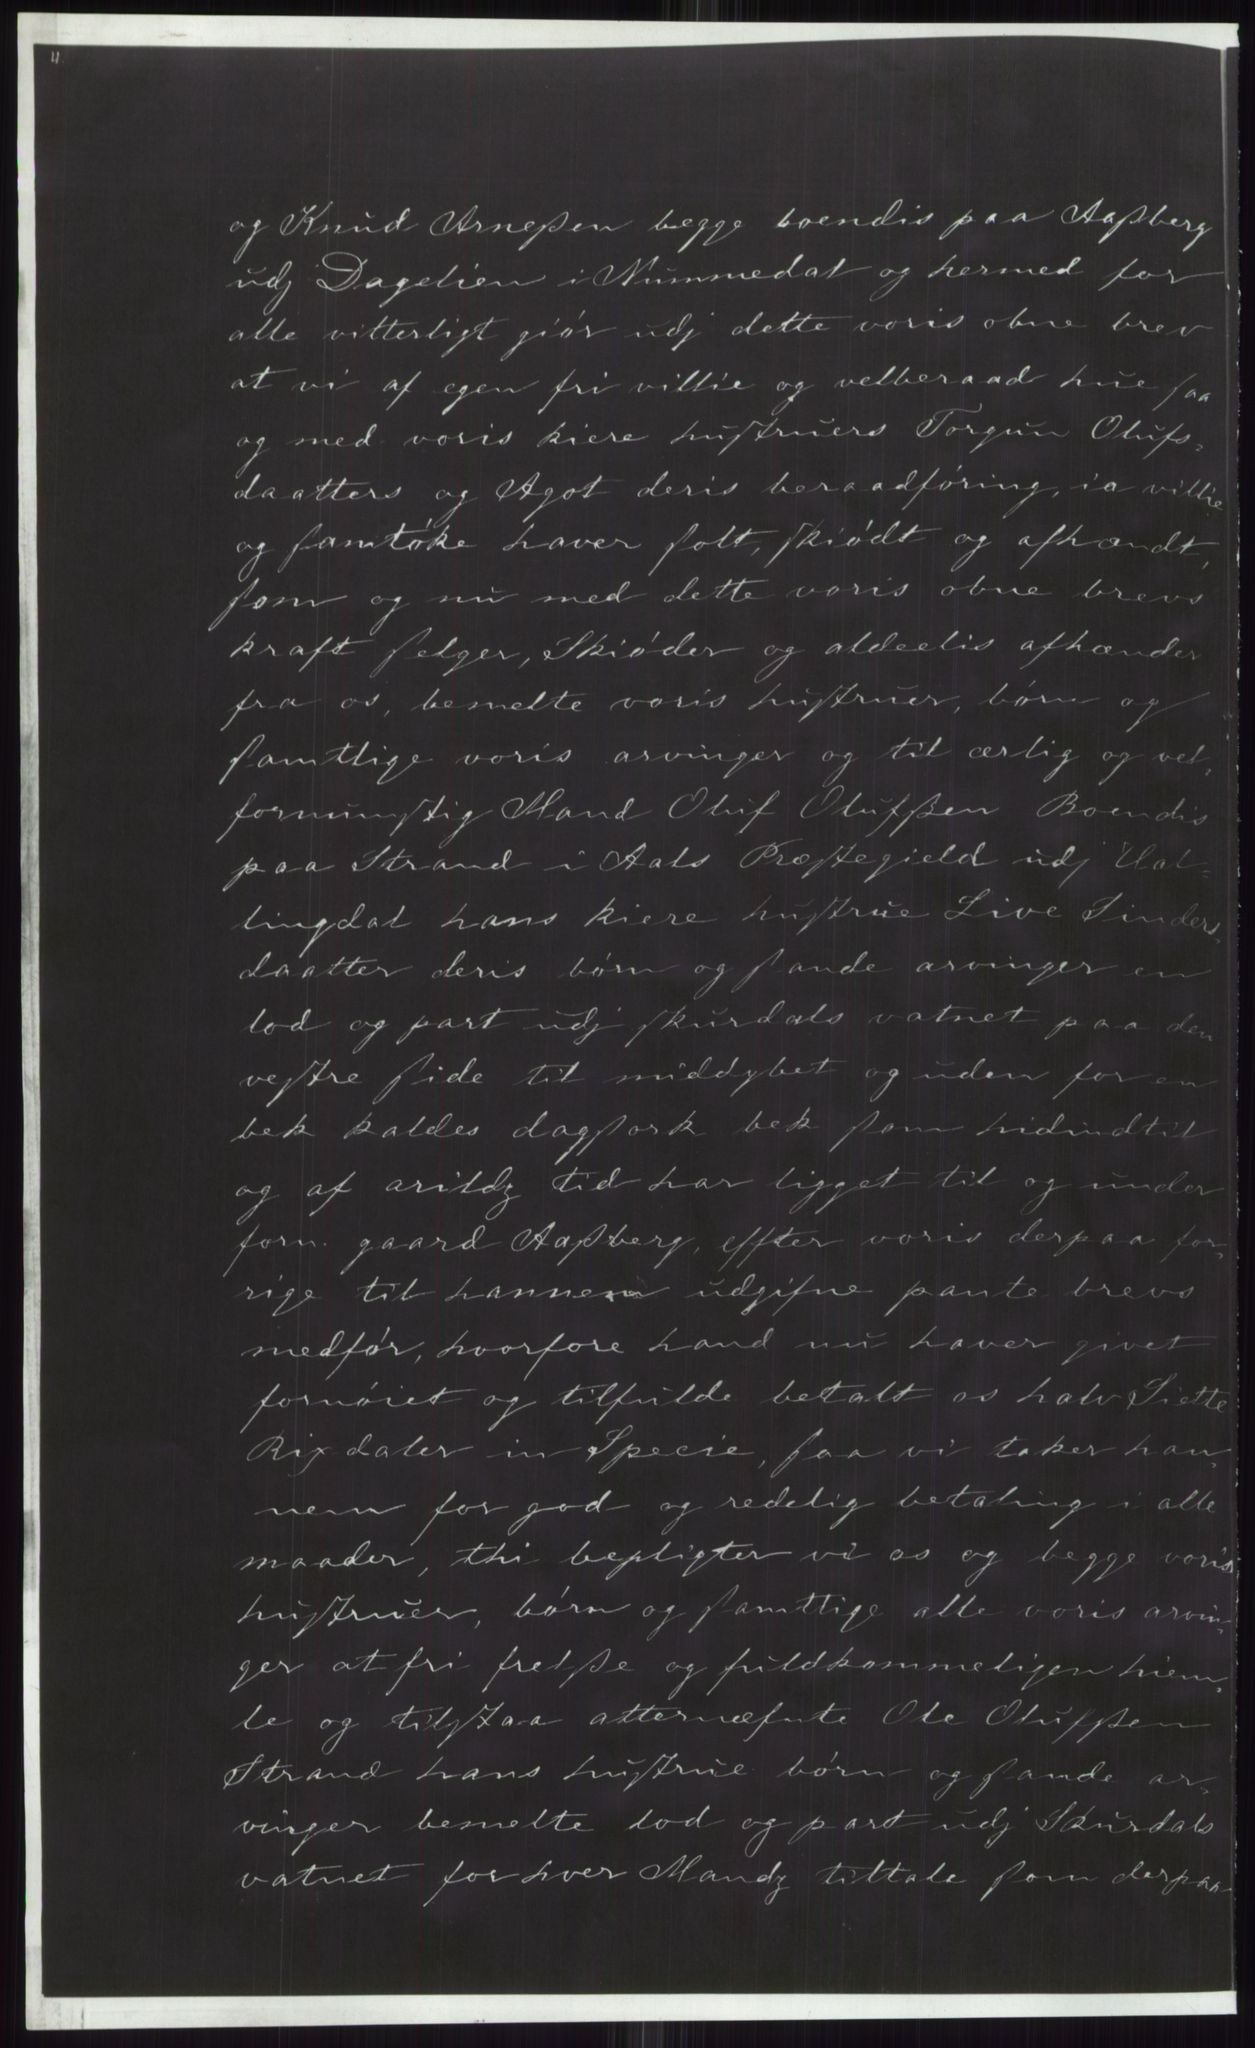 og Knud Arneßen begge boendis paa Aaßberg
udj Dagelien i Nummedal og hermed for
alle vitterligt giör udj dette voris obne brev
at vi af egen fri villie og velberaad hue saa
og med voris kiere hustruers Torgun Olufs-
daatters og Agot deris beraadføring, ia villie
og samtöke haver solt, skiödt og afhændt,
som og nu med dette voris obne brevs
kraft selger, Skiöder og aldeelis afhænder
fra os, bemelte voris hustruer, børn og
samtlige voris arvinger og til ærlig og vel-
fornumstig Mand Oluf Olufßen Boendis
paa Strand i Aals Præstegield udj Hal-
lingdal hans kiere hustrue Live Sinders-
daatter deris børn og sande arvinger en
lod og part udj skurdals vatnet paa den
vestre side til middybet og uden for en
bek kaldes dagsork bek som hidindtil
og af arildz tid har ligget til og under
forn. gaard Aaßberg, effter voris derpaa for-
rige til hannem udgifne pante brevs
medfør, hvorfore hand nu haver givet
fornöiet og tilfulde betalt os halv Siette
Rixdaler in Specie, saa vi takker han-
nem for god og redelig betaling i alle
maader, thi bepligter vi os og begge voris
hustruer, børn og samtlige alle voris arvin-
ger at fri frelße og fuldkommeligen hiem-
le og tilstaa atternæfnte Ole Olufßen
Strand hans hustrue børn og sande ar-
vinger bemelte lod og part udj Skurdals
vatnet for hver Mandz tiltale som derpaa